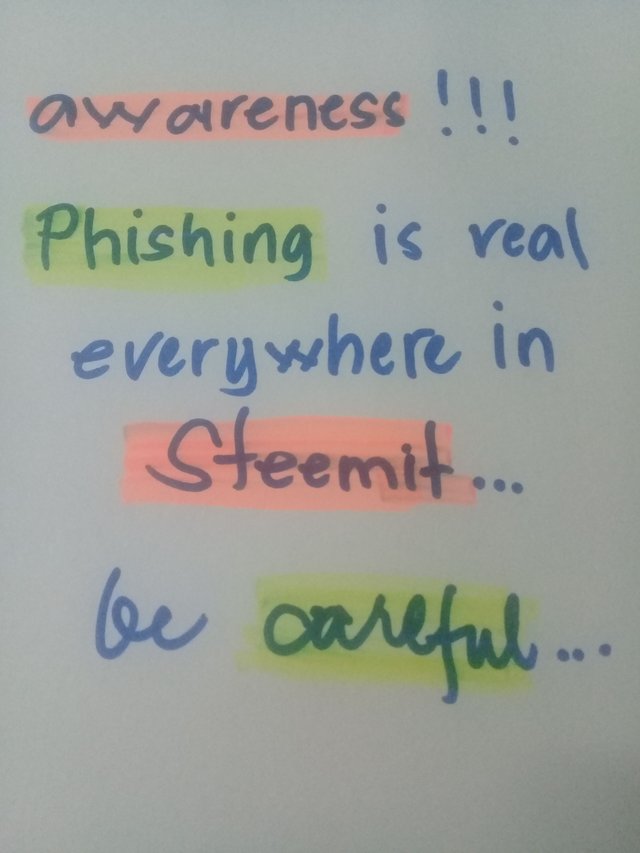 awareness !!!
Phishing is real
everywhere in
Steemit...
be careful...